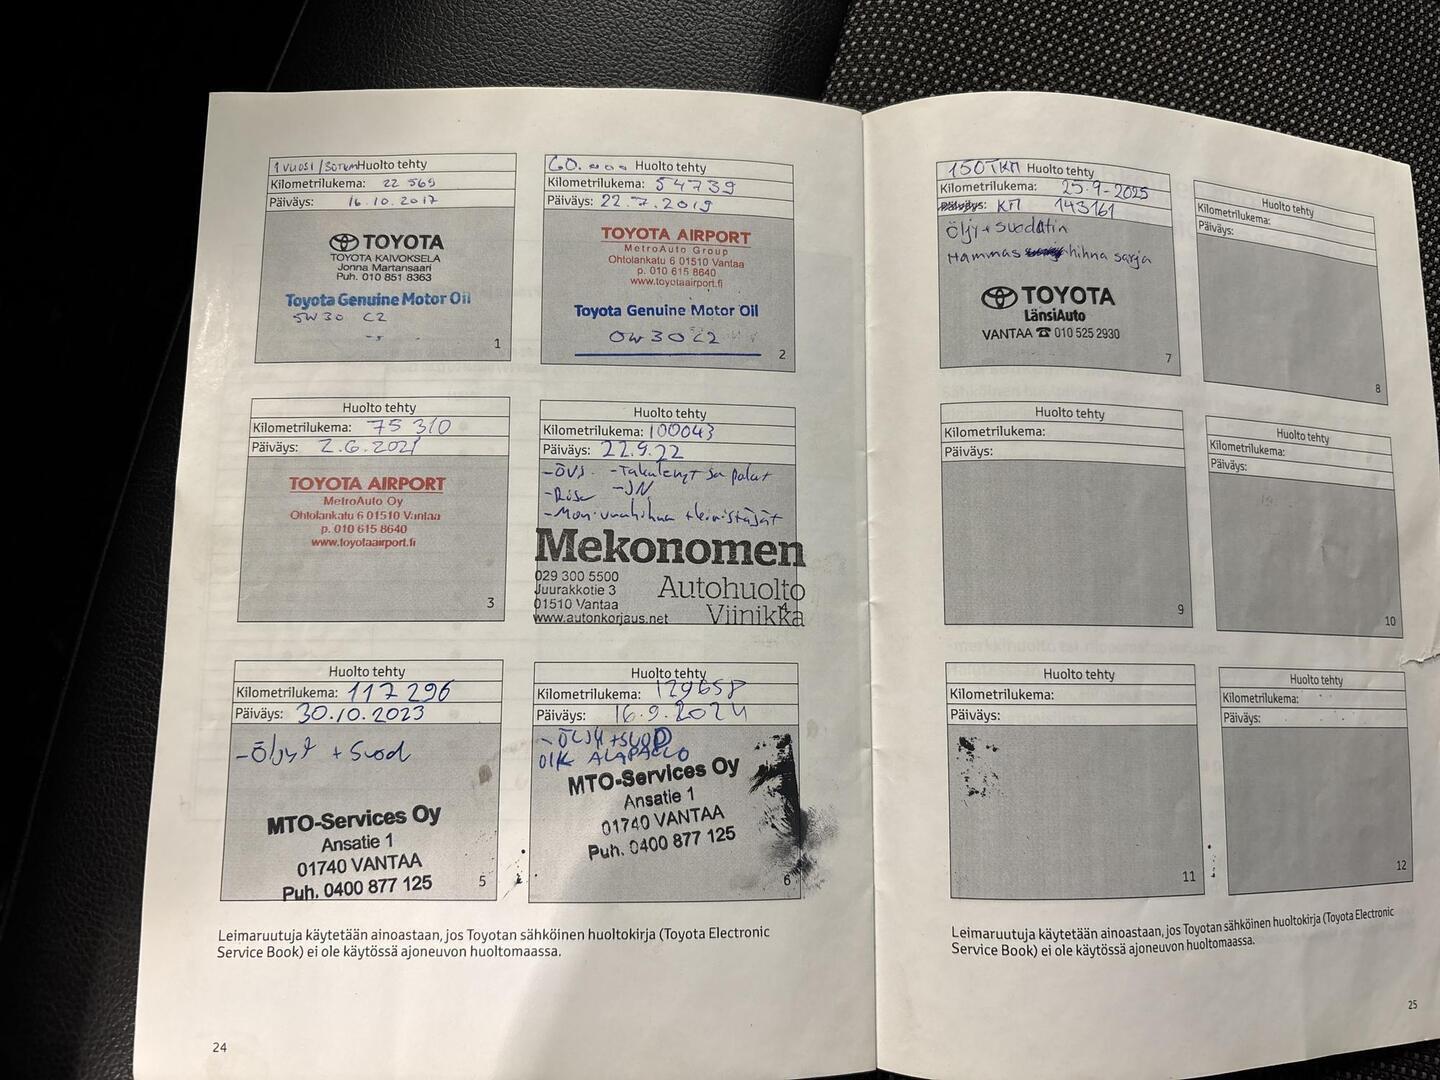 1 vuosi / 30TKM Huolto tehty
Kilometrilukema: 22 569
Päiväys: 16.10.2017
TOYOTA
TOYOTA KAIVOKSELA
Jonna Martansaari
Puh. 010 851 8363
Toyota Genuine Motor Oil
5W30 C2
1
60.000 Huolto tehty
Kilometrilukema: 54739
Päiväys: 22.7.2019
TOYOTA AIRPORT
MetroAuto Group
Ohtolankatu 6 01510 Vantaa
p. 010 615 8640
www.toyotaairport.fi
Toyota Genuine Motor Oil
0W30 C2
2
Huolto tehty
Kilometrilukema: 75 310
Päiväys: 2.6.2021
TOYOTA AIRPORT
MetroAuto Oy
Ohtolankatu 6 01510 Vantaa
p. 010 615 8640
www.toyotaairport.fi
3
Huolto tehty
Kilometrilukema: 100043
Päiväys: 22.9.22
-ÖVS. -Takalenyt ja palat
-JN
-Moniurahihna + kiristäjät
Mekonomen
029 300 5500
Juurakkotie 3
01510 Vantaa
www.autonkorjaus.net
Autohuolto
Viinikka
4
Huolto tehty
Kilometrilukema: 117 296
Päiväys: 30.10.2023
-Öljyt + Suod
MTO-Services Oy
Ansatie 1
01740 VANTAA
Puh. 0400 877 125
5
Huolto tehty
Kilometrilukema: 129658
Päiväys: 16.9.2024
- ÖLJY + SUOD
MTO-Services Oy
Ansatie 1
01740 VANTAA
Puh. 0400 877 125
6
Leimaruutuja käytetään ainoastaan, jos Toyotan sähköinen huoltokirja (Toyota Electronic
Service Book) ei ole käytössä ajoneuvon huoltomaassa.
24
150TKM Huolto tehty
Kilometrilukema: 25.9-2025
Päiväys: KM 143161
Öljy + suodatin
Hammas hihna sarja
TOYOTA
LänsiAuto
VANTAA ☎ 010 525 2930
7
Huolto tehty
Kilometrilukema:
Päiväys:
8
Huolto tehty
Kilometrilukema:
Päiväys:
9
Huolto tehty
Kilometrilukema:
Päiväys:
10
Huolto tehty
Kilometrilukema:
Päiväys:
11
Huolto tehty
Kilometrilukema:
Päiväys:
12
Leimaruutuja käytetään ainoastaan, jos Toyotan sähköinen huoltokirja (Toyota Electronic
Service Book) ei ole käytössä ajoneuvon huoltomaassa.
25